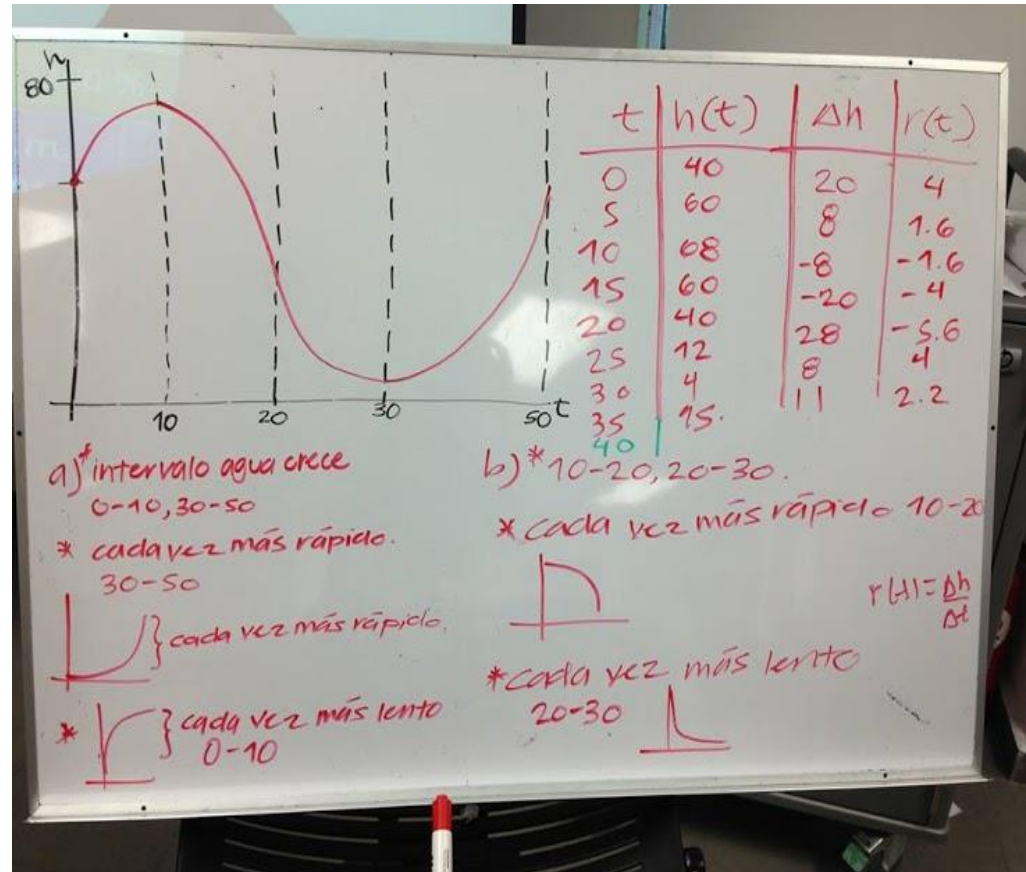 h
80
10 20 30 50 t
t h(t) Δh r(t)
0 40 20 4
5 60 8 1.6
10 68 -8 -1.6
15 60 -20 -4
20 40 28 -5.6
25 12 8 4
30 4 11 2.2
35 15.
40
a) * intervalo agua crece
0-10, 30-50
* cada vez más rápido.
30-50
} cada vez más rápido.
* } cada vez más lento
0-10
b) * 10-20, 20-30.
* cada vez más rápido 10-20
r(t) = Δh
Δt
* cada vez más lento
20-30